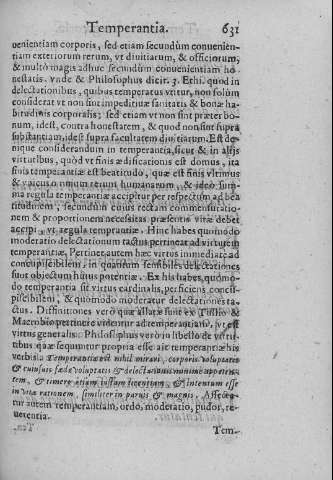 Temperantia. 631
uenientiam corporis, sed etiam secundùm conuenien-
tiam exteriorum rerum, vt diuitiarum, & officiorum,
& multò magis adhuc secundùm conuenientiam ho
nestatis. vnde & Philosophus dicit. 3. Ethi. quod in
delectationibus, quibus temperatus vtitur, non solùm
considerat vt non sint impeditiuæ sanitatis & bonæ ha-
bitudinis corporalis; sed etiam vt non sint præter bo-
num, idest, contra honestatem, & quod non sint supra
substantiam, idest supra facultatem diuitiarum. Est de-
nique considerandum in temperantia, sicut & in alijs
virtutibus, quòd vt finis ædificationis est domus, ita
finis temperantiæ est beatitudo, quæ est finis vltimus
& vnicus omnium rerum humanarum, & ideò sum-
ma regula temperantiæ accipitur per respectum ad bea
titudinem, secundum cuius rectam commensuratio-
nem & proportionem necessitas præsentis vitæ debet
accipi, vt regula temprantiæ. Hinc habes quomodo
moderatio delectationum tactus pertineat ad virtutem
temperantiæ. Pertinet autem hæc virtus immediatè ad
concupiscibilem, in quantum sensibiles delectationes
sunt obiectum huius potentiæ. Ex his habes, quomo-
do temperantia sit virtus cardinalis, perficiens concu-
piscibilem, & quomodo moderatur delectationes ta-
ctus. Diffinitiones verò quæ allatæ sunt ex Tullio &
Macrobio pertinere videntur ad temperantiam, vt est
virtus generalis. Philosophus verò in libello de virtu-
tibus quæ sequuntur propria esse ait temperantiæ his
verbis. Temperantiæ est nihil mirari, corporis voluptates
& cuiusuis fœdæ voluptatis & delectationis minimè appeten-
tem, & timere etiam iustam licentiam, & intentum esse
in vita rationem, similiter in paruis & magnis. Assecta-
tur autem temperantiam, ordo, moderatio, pudor, re-
uerentia.
Tem-